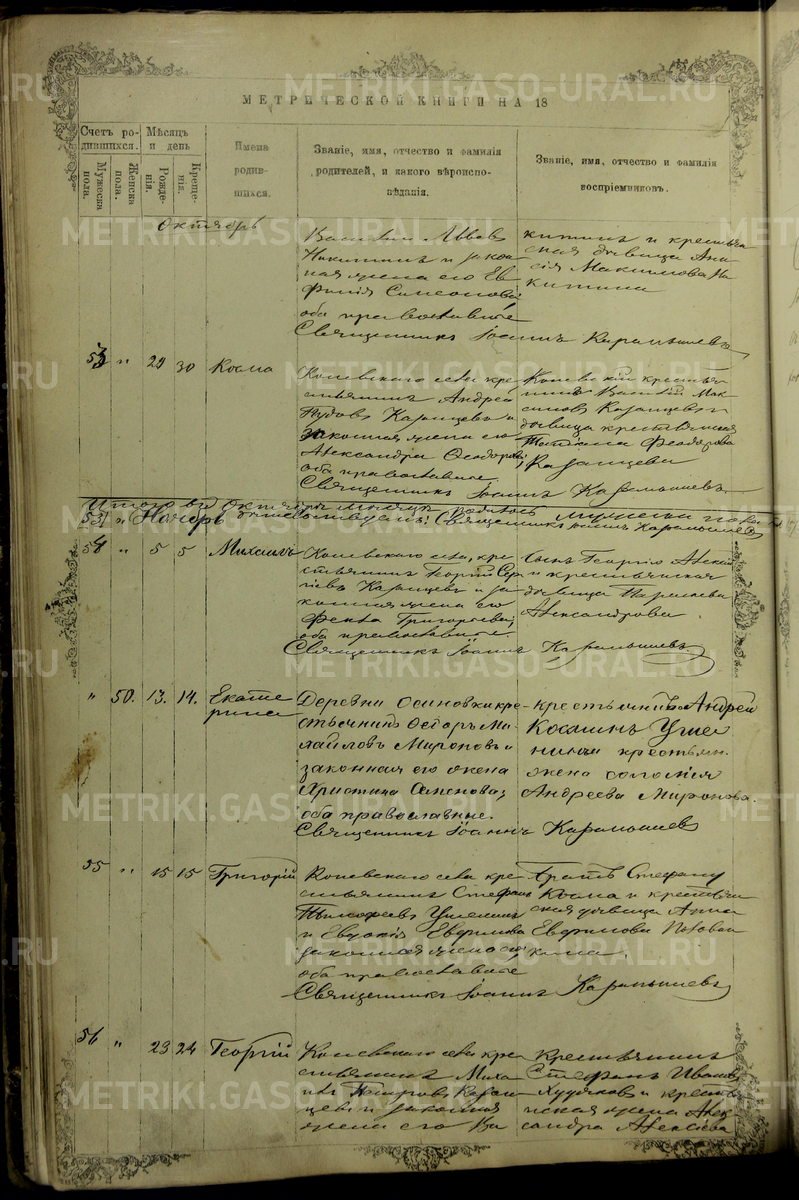 МЕТРИЧЕСКОЙ КНИГИ НА 18
Счетъ ро-
дившихся.
Мужеска пола.
Женска пола.
Мѣсяцъ
и день
Рожде-
нія.
Креще-
нія.
Имена
родив-
шихся.
Званіе, имя, отчество и фамилія
родителей, и какого вѣроиспо-
вѣданія.
Званіе, имя, отчество и фамилія
воспріемниковъ.
Октябрь
Василій Львовъ
Никитинъ и закон
ная жена его Ев
фимія Симеонова
оба православные
Священникъ Іоаннъ Карамышевъ
китинъ и крестьян
ская дѣвица Ана
сія Максимова Ни
китина
53 " 29 30 Косма
Коневскаго села кре
стьянинъ Андрей
Карпцевъ и
законная жена его
Александра Ѳеодорова
оба православные
Священникъ Іоаннъ Карамышевъ
Коневскій крестья
нинъ Василій Мак
симовъ и
дѣвица крестьянская
Татіана Феодорова
Итого въ Октябрѣ мѣсяцѣ родилось мужеска пола
Священникъ Іоаннъ Карамышевъ
Ноябрь
54 " 5 5 Михаилъ
Коневскаго села, кре
стьянинъ Георгій Сер
гіевъ и за
конная жена его
Фекла Григорьева;
оба православные.
Священникъ Іоаннъ Карамышевъ.
Сынъ Георгію Алексѣй
и крестьянская
дѣвица Параскева
Александрова
" 50. 13. 14. Екате
рина
Деревни Осиновки кре-
стьянинъ Ѳедоръ Ми-
хайловъ Мироновъ и
законная его жена
Христина Семенова;
оба православные.
Священникъ Іоаннъ Карамышевъ
крестьянинъ Андрей
Косминъ
крестьян.
жена Соломія
Андреева Миронова.
55 " 15 15 Григорій
Коневскаго села кре
стьянинъ Стефанъ
Тимофеевъ
и Евдокія Евфимова
законная жена его
оба православные
Священникъ Іоаннъ Карамышевъ
Братъ Стефану
Косма и крестьян
ская дѣвица Анна
Евфимова
56 " 23 24 Георгій
Коневскаго села кре
стьянинъ Миха
илъ Петровъ
и законная
жена его
Крестьянинъ
Стефанъ Ивановъ
Худяковъ и крестья
нская жена Алек
сандра Алексѣева
METRIKI.GASO-URAL.RU